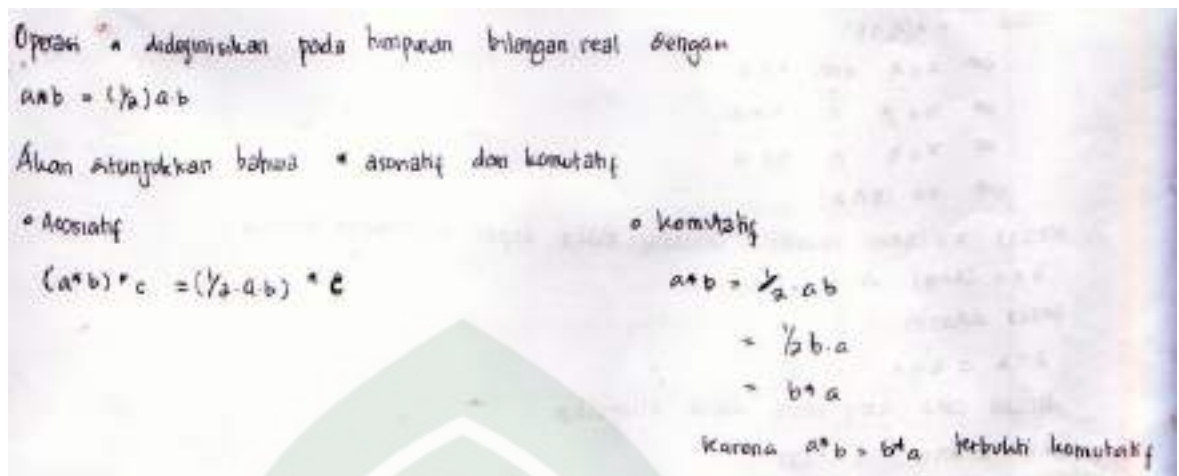 Operasi * didefinisikan pada himpunan bilangan real dengan
a*b = (1/2) a.b
Akan ditunjukkan bahwa * asosiatif dan komutatif
• Asosiatif
(a*b)*c = (1/2.a.b) * c
• komutatif
a*b = 1/2.ab
= 1/2 b.a
= b*a
karena a*b = b*a terbukti komutatif